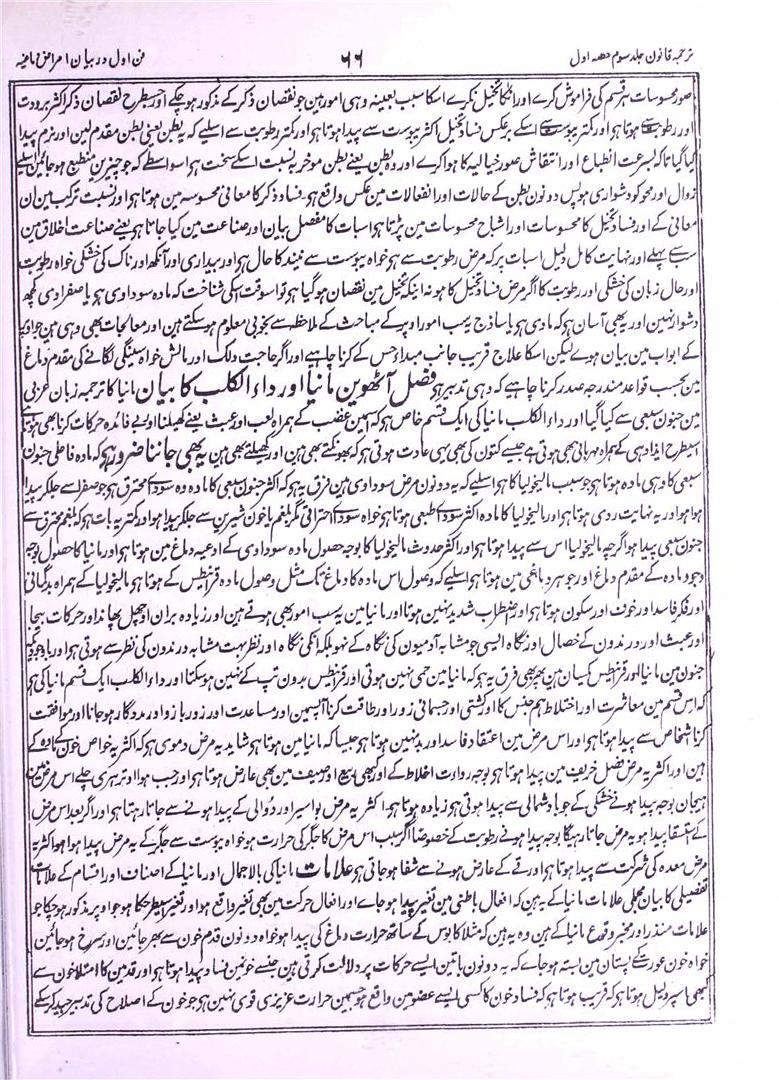 ترجمہ قانون جلد سوم حصہ اول ۶۶ فن اول در بیان امراض دماغیہ
صور محسوسات ہر قسم کی فراموش کرے اور انکا تخیل نکرے اسکا سبب بعینہ وہی امور ہین جو نقصان ذکر کے مذکور ہوچکے اور جسطرح نقصان ذکر اکثر برودت
اور رطوبت سے ہوتا ہو اور کمتر یبوست سے اسکے برعکس فساد تخیل اکثر یبوست سے پیدا ہوتا ہو اور کمتر رطوبت سے اسلیے کہ یہ بطن یعنی بطن مقدم لین اور نرم پیدا
کیا گیا تاکہ بسرعت انطباع اور انتقاش صور خیالیہ کا ہوا کرے اور وہ بطن یعنے بطن موخر بہ نسبت اسکے سخت ہو اسواسطے کہ جو چیزین منطبع ہوجائین اسلیے
زوال اور محو کو دشواری ہو پس دونون بطن کے حالات اور انفعالات مین عکس واقع ہو۔ فساد ذکر کا معانی محسوسہ مین ہوتا ہو اور نسبت ترکیب مین ان
معانی کے اور فساد تخیل کا محسوسات اور اشباح محسوسات مین پڑتا ہو اسبات کا مفصل بیان اور صناعت مین کیا جاتا ہو یعنے صناعت اخلاق مین
سب سے پہلے اور نہایت کامل دلیل اسبات پر کہ مرض رطوبت سے ہو خواہ یبوست سے نیند کا حال ہو اور بیداری اور آنکھ اور ناک کی خشکی خواہ رطوبت
اور حال زبان کی خشکی اور رطوبت کا اگر مرض فساد تخیل کا ہو نہ اینکہ تخیل مین نقصان ہوگیا ہو تو اسوقت اسکی شناخت کہ مادہ سوداوی ہو یا صفراوی کچھ
دشوار نہین اور یہ بھی آسان ہو کہ مادی ہو یا ساذج یہ سب امور اوپر کے مباحث کے ملاحظہ سے بخوبی معلوم ہوسکتے ہین اور معالجات بھی وہی ہین جو اوپر
کے ابواب مین بیان ہوے لیکن اسکا علاج قریب جانب مبدا حس کے کرنا چاہیے اور اگر حاجت دلک اور مالش خواہ سینگی لگانے کی مقدم دماغ
مین بحسب قواعد مندرجہ صدر کرنا چاہیے کہ وہی تدبیر ہو فصل آٹھوین مانیا اور داء الکلب کا بیان مانیا کا ترجمہ زبان عربی
مین جنون سبعی سے کیا گیا اور داء الکلب مانیا کی ایک قسم خاص ہو کہ جسمین غضب کے ہمراہ لعب اور عبث یعنے کھیلنا اور بے فائدہ حرکات کرنا بھی ہوتا ہے
اسیطرح ایذا دہی کے ہمراہ مہربانی بھی ہوتی ہے جیسے کتون کی بھی یہی عادت ہوتی ہو کہ بھونکتے بھی ہین اور کھیلتے بھی ہین یہ بھی جاننا ضرور ہو کہ مادہ فاعلی جنون
سبعی کا وہی مادہ ہوتا ہو جو سبب مالیخولیا کا ہو اسلیے کہ یہ دونون مرض سوداوی ہین فرق یہ ہو کہ اکثر جنون سبعی کا مادہ وہ سوداے محترق ہو جو صفرا سے جلکر پیدا
ہوا ہو اور یہ نہایت ردی ہوتا ہو اور مالیخولیا کا مادہ اکثر سوداے طبعی ہوتا ہو خواہ سوداے احتراقی مگر بلغم یا خون شیرین سے جلکر پیدا ہوا ہو اور کمتر یہ بات ہو کہ بلغم محترق سے
جنون سبعی پیدا ہو اگرچہ مالیخولیا اس سے پیدا ہوتا ہو اور اکثر حدوث مالیخولیا کا بوجہ حصول مادہ سوداوی کے ادعیہ دماغ مین ہوتا ہو اور مانیا کا حصول بوجہ
وجود مادہ کے مقدم دماغ اور جوہر دماغی مین ہوتا ہو اسلیے کہ وصول اس مادہ کا دماغ تک مثل وصول مادہ قرانیطس کے ہوتا ہو مالیخولیا کے ہمراہ بدگمانی
اور فکر فاسد اور خوف اور سکون ہوتا ہو اور اضطراب شدید نہین ہوتا اور مانیا مین یہ سب امور بھی ہوتے ہین اور زیادہ بران اوچھل پھاند اور حرکات بیجا
اور عبث اور درندون کے خصال اور نگاہ ایسی جو مشابہ آدمیون کی نگاہ کے نہو بلکہ انکی نگاہ اور نظر بہت مشابہ درندون کی نظر سے ہوتی ہو اور باوجودیکہ
جنون مین مانیا اور قرانیطس یکسان ہین پھر بھی فرق یہ ہو کہ مانیا مین حمی نہین ہوتی اور قرانیطس بدون تپ کے نہین ہوسکتا اور داء الکلب ایک قسم مانیا کی ہو
کہ اس قسم مین معاشرت اور اختلاط ہم جنس کا اور کشتی اور جسمانی زور اور طاقت کرنا آپسمین اور مساعدت اور زور بازو اور مددگار ہوجانا اور موافقت
کرنا اشخاص سے پیدا ہوتا ہو اور اس مرض مین اعتقاد فاسد اور بد نہین ہوتا ہو جیسا کہ مانیا مین ہوتا ہو شاید یہ مرض دموی ہو کہ اکثر یہ خواص خون کے مادہ کے
ہین اور اکثر یہ مرض فصل خریف مین پیدا ہوتا ہو بوجہ رداءت اخلاط کے اور کبھی ربیع اور صیف مین بھی عارض ہوتا ہو اور جب ہوا اوترہری چلے اس مرض مین
ہیجان بوجہ پیدا ہونے خشکی کے جو باد شمالی سے پیدا ہوتی ہو زیادہ ہوتا ہو اکثر یہ مرض بواسیر اور دوالی کے پیدا ہونے سے جاتا رہتا ہو اور اگر بعد اس مرض
کے استسقا پیدا ہو یہ مرض جاتا رہیگا بوجہ پیدا ہونے رطوبت کے خصوصاً اگر سبب اس مرض کا جگر کی حرارت ہو خواہ یبوست سے جگر کے یہ مرض پیدا ہوا ہو اکثر یہ
مرض معدہ کی شرکت سے پیدا ہوتا ہو اور قے کے عارض ہونے سے شفا ہوجاتی ہو علامات مانیا کی بالاجمال اور مانیا کے اصناف اور اقسام کے علامات
تفصیلی کا بیان مجملی علامات مانیا کے یہ ہین کہ افعال باطنی مین تغیر پیدا ہو جاے اور افعال حرکت مین بھی تغیر واقع ہو اور تغیر اسیطرحکا ہو جو اوپر مذکور ہوچکا جو
علامات منذر اور مخبر وقوع مانیا کے ہین وہ یہ ہین کہ مثلاً کابوس کے ساتھ حرارت دماغ کی پیدا ہو خواہ دونون قدم خون سے بھر جائین اور سرخ ہوجائین
خواہ خون عورت کے پستان مین بستہ ہوجاے کہ یہ دونون باتین ایسے حرکات پر دلالت کرتی ہین جنسے خونمین فساد پیدا ہوتا ہو اور قدمین کا امتلا خون سے
کبھی اسپر دلیل ہوتا ہو کہ قریب ہوتا ہو کہ فساد خون کا کسی ایسے عضو مین واقع ہو جسمین حرارت غریزی قوی نہین ہو جو خون کے اصلاح کی تدبیر جید کرسکے